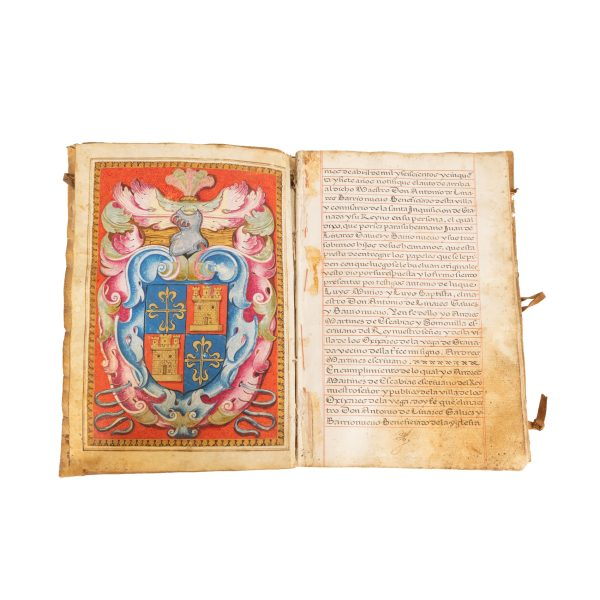 mos de abril de mil y seiscientos y cinque
ta y siete años notifique el auto de arriba
al dicho Maestro Don Antonio de Lina
res Barrionuevo Beneficiado de la villa
y comisario de la santa Inquisicion de Gra
nada y su Reyno en su persona, el qual
dixo, que por si y para su hermano Juan de
Linares Galvez y Barrionuevo y sus tres
sobrinos hijos de su hermano, que esta
presto de entregar los papeles que se le pi
den con que luego se le buelvan originales
esto dio por su respuesta y lo firmo siendo
presentes por testigos Antonio de
Luys Muñoz y Luys Baptista, el ma
estro Don Antonio de Linares Galvez
y Barrionuevo, Yendello yo Andres
Martines de Escabias y es
crivano del Rey nuestro señor y de la vi
lla de los Ogixares de la vega de Grana
da y vecino della fice mi signo, Andres
Martines escrivano.
En cumplimiento de lo qual yo Andres
Martines de Escabias Escrivano del Rey
nuestro señor y publico de la villa de los
Ogixares de la vega, doy fe que el maes
tro Don Antonio de Linares Galvez y
Barrionuevo Beneficiado de la yglesia